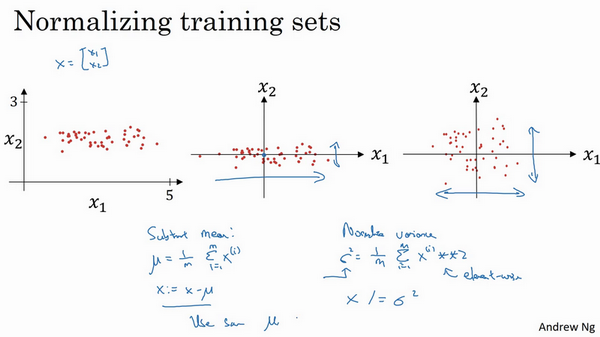 Normalizing training sets
x = [x₁ x₂]
3
x₂
x₁
5
x₂
x₁
x₂
x₁
Subtract mean:
μ = 1/m Σᵢ₌₁ᵐ x⁽ⁱ⁾
x := x - μ
Use sam μ
Normalize variance
σ² = 1/m Σᵢ₌₁ᵐ x⁽ⁱ⁾ ** 2
element-wise
x /= σ²
Andrew Ng